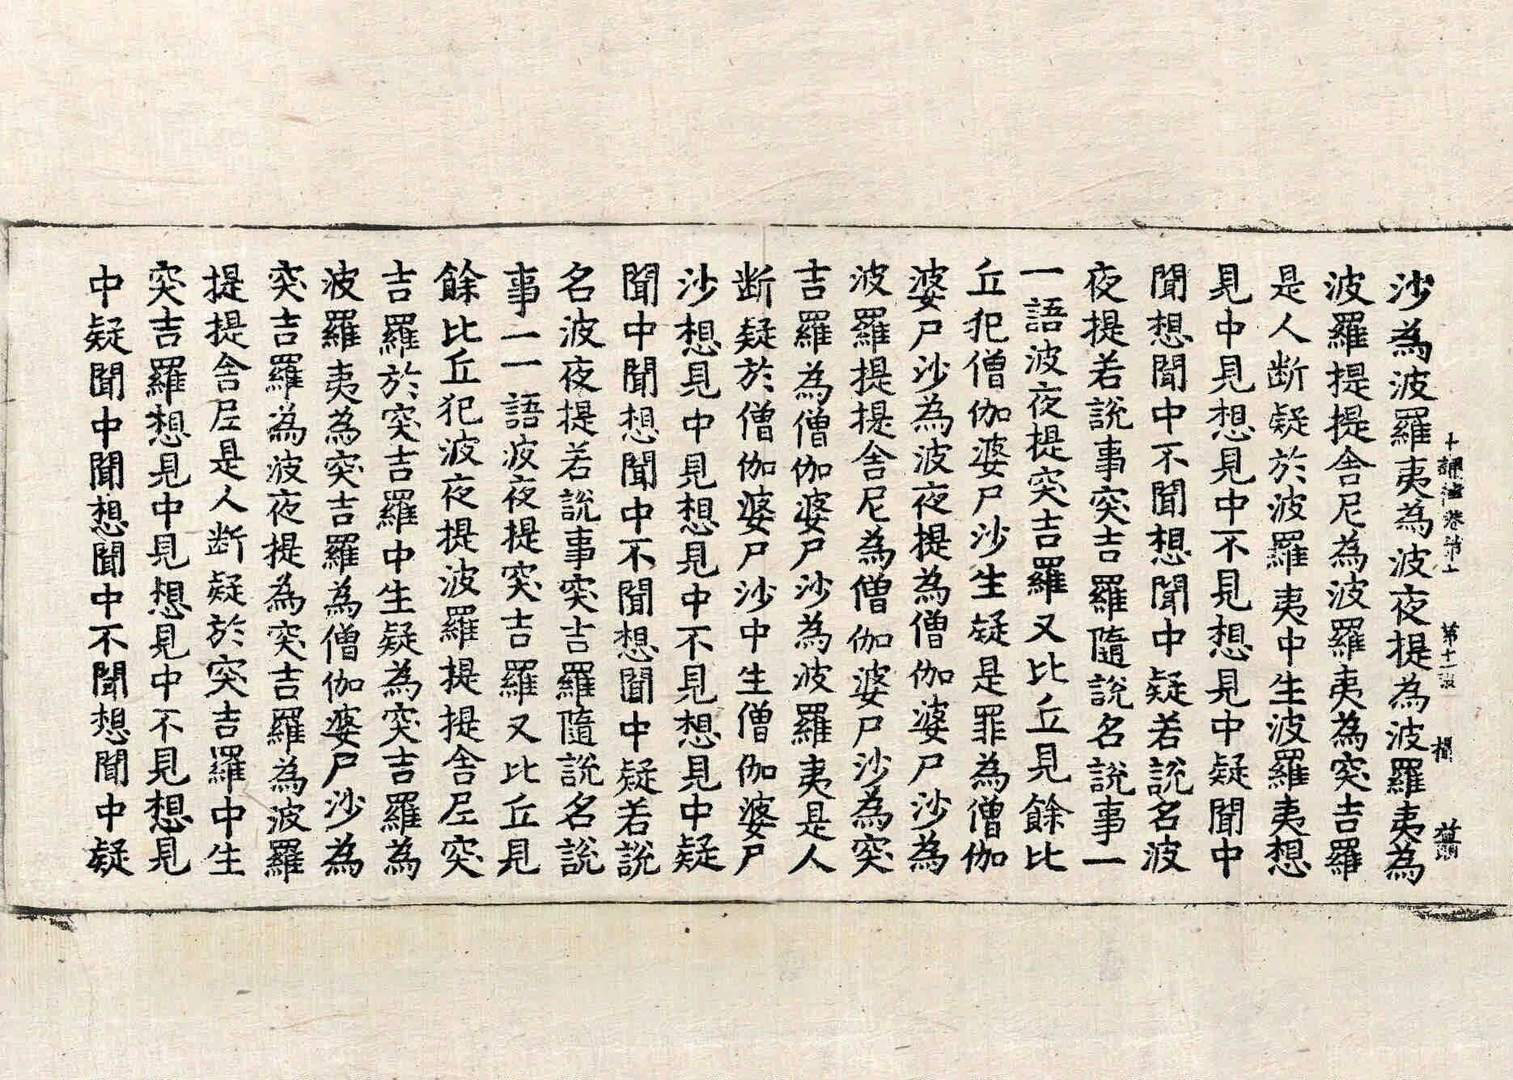 沙為波羅夷為波夜提為波羅夷為
十誦律卷第十 第十一張
波羅提提舍尼為波羅夷為突吉羅
是人断疑於波羅夷中生波羅夷想
見中見想見中不見想見中疑聞中
聞想聞中不聞想聞中疑若說名波
夜提若說事突吉羅隨說名說事一
一語波夜提突吉羅又比丘見餘比
丘犯僧伽婆尸沙生疑是罪為僧伽
婆尸沙為波夜提為僧伽婆尸沙為
波羅提提舍尼為僧伽婆尸沙為突
吉羅為僧伽婆尸沙為波羅夷是人
断疑於僧伽婆尸沙中生僧伽婆尸
沙想見中見想見中不見想見中疑
聞中聞想聞中不聞想聞中疑若說
名波夜提若說事突吉羅隨說名說
事一一語波夜提突吉羅又比丘見
餘比丘犯波夜提波羅提提舍尼突
吉羅於突吉羅中生疑為突吉羅為
波羅夷為突吉羅為僧伽婆尸沙為
突吉羅為波夜提為突吉羅為波羅
提提舍尼是人断疑於突吉羅中生
突吉羅想見中見想見中不見想見
中疑聞中聞想聞中不聞想聞中疑